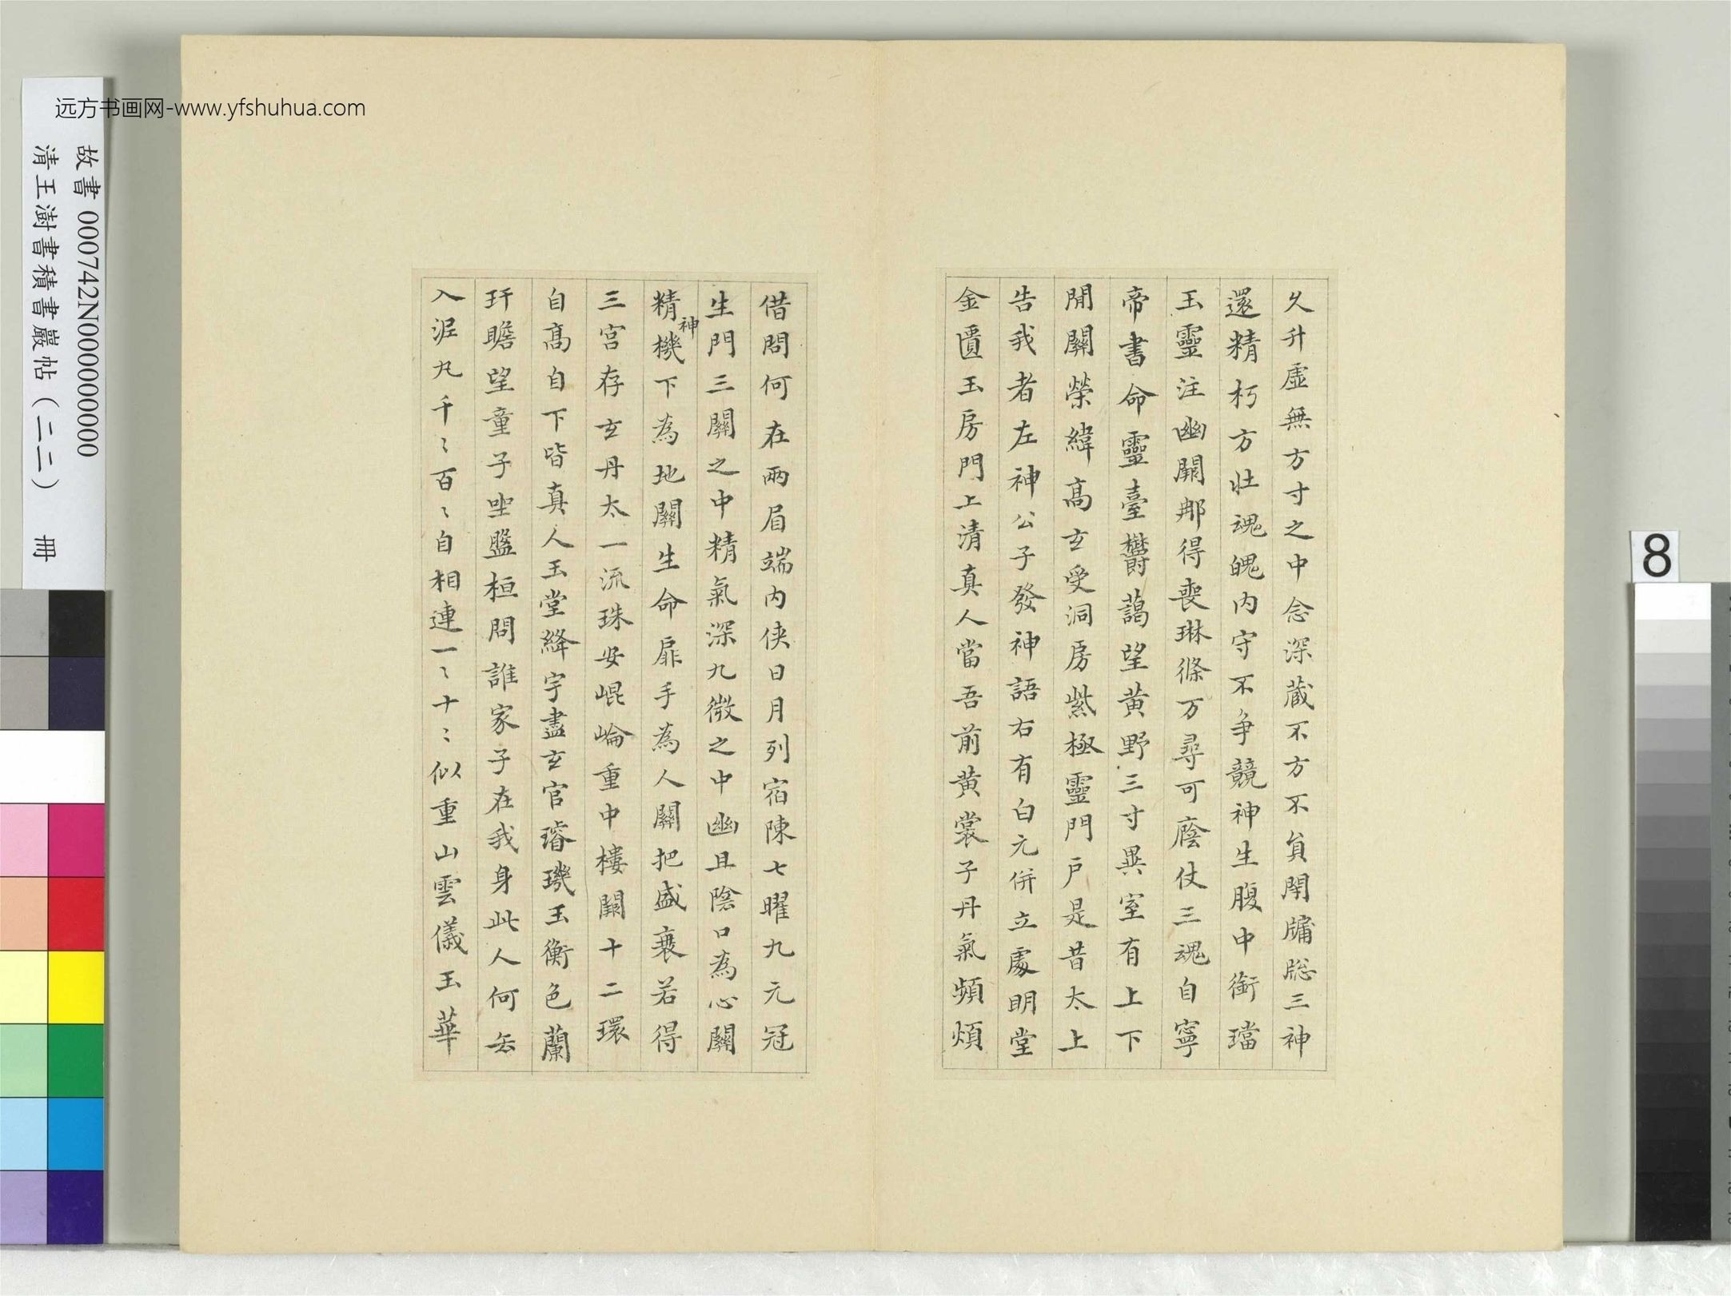 远方书画网-www.yfshuhua.com
故書 000742N000000000
清王澍書積書巖帖(二二) 冊
8
久升虛無方寸之中念深藏不方不負閉牖牕三神
還精朽方壯魂魄内守不争競神生腹中銜璫
玉靈注幽闕那得喪琳條万尋可廕仗三魂自寧
帝書命靈臺欝藹望黄野三寸異室有上下
閒關榮緯高玄受洞房紫極靈門戶是昔太上
告我者左神公子發神語右有白元併立處明堂
金匱玉房門上清真人當吾前黄裳子丹氣頻煩
借問何在兩眉端内俠日月列宿陳七曜九元冠
生門三關之中精氣深九微之中幽且陰口為心關
精神機下為地關生命扉手為人關把盛衰若得
三宮存玄丹太一流珠安崐崘重中樓闕十二環
自髙自下皆真人玉堂絳宇盡玄官璿璣玉衡色蘭
玕瞻望童子坐盤桓問誰家子在我身此人何去
入泥丸千〻百〻自相連一〻十〻似重山雲儀玉華